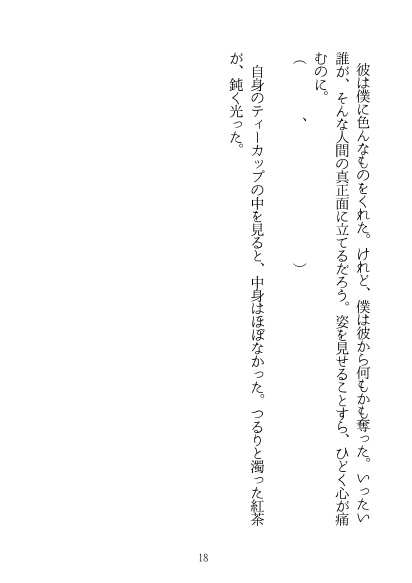 彼は僕に色んなものをくれた。けれど、僕は彼から何もかも奪った。いったい
誰が、そんな人間の真正面に立てるだろう。姿を見せることすら、ひどく心が痛
むのに。
（　　　、　　　　　　　　　　　）
　自身のティーカップの中を見ると、中身はほぼなかった。つるりと濁った紅茶
が、鈍く光った。
18